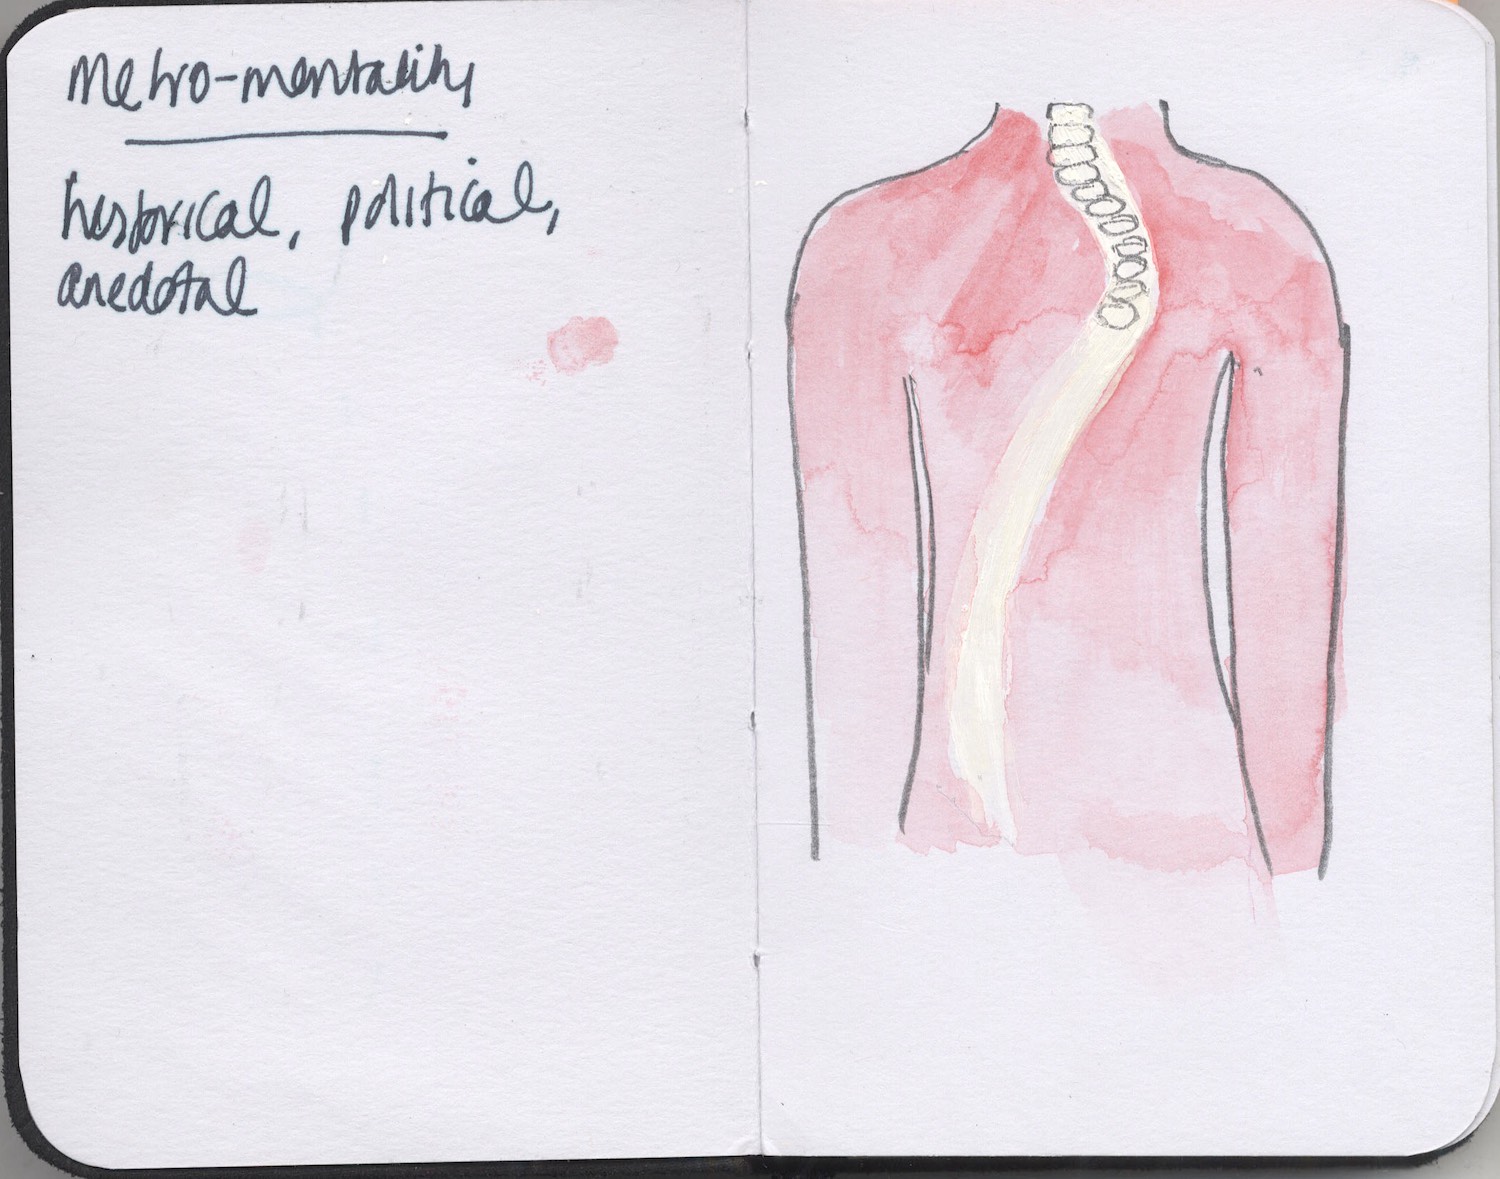 Metro-mentality
historical, political,
anedotal